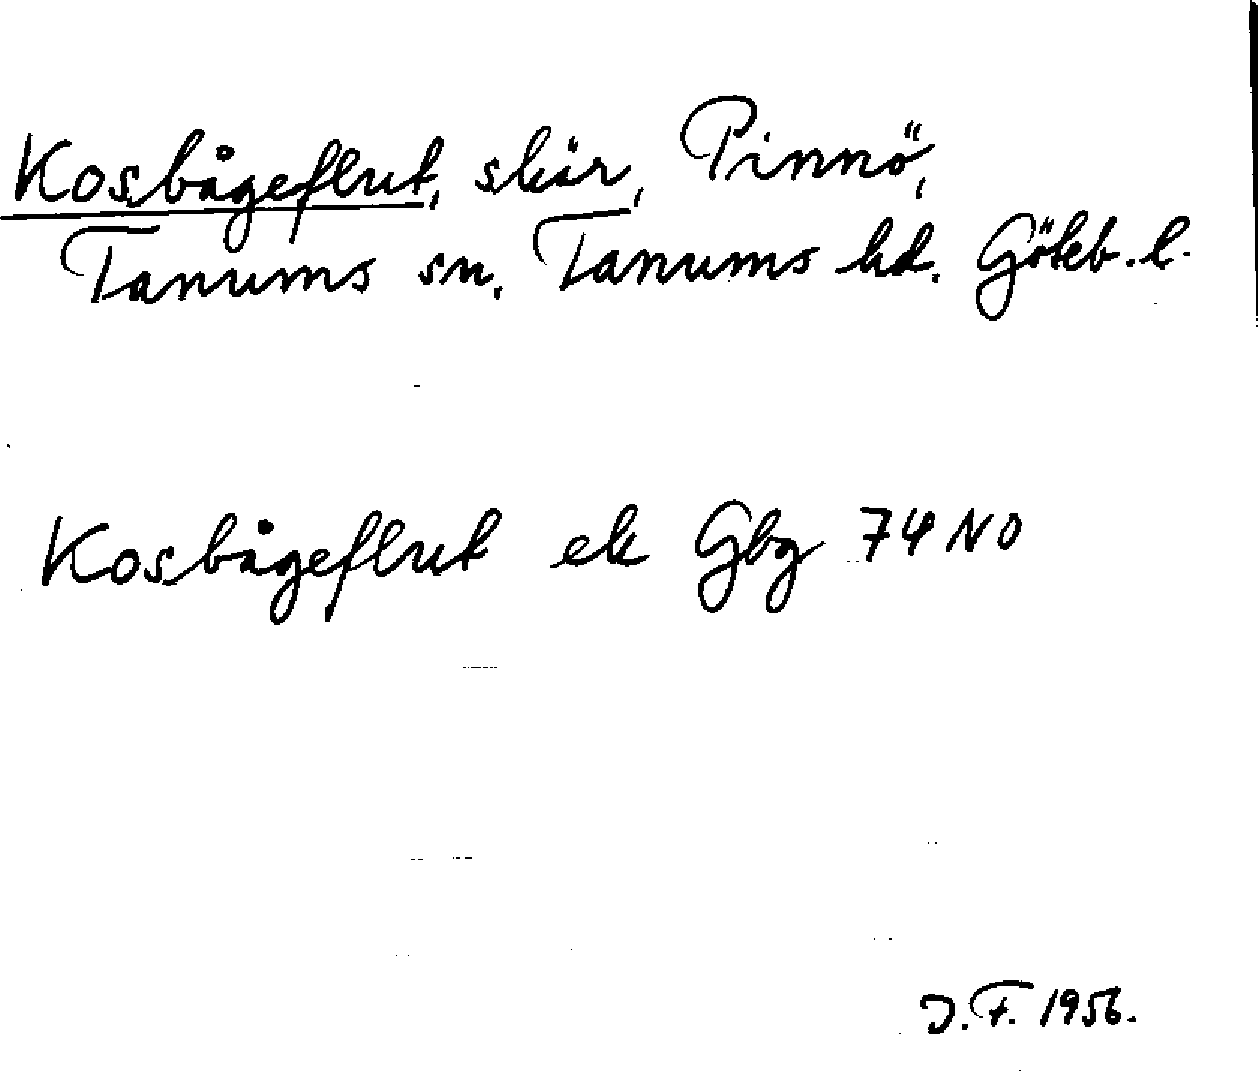 Kosbågeflut, skär, Pinnö,
Tanums sn, Tanums hd. Göteb. l.
Kosbågeflut ek Gbg 74 NO
J.F. 1956.